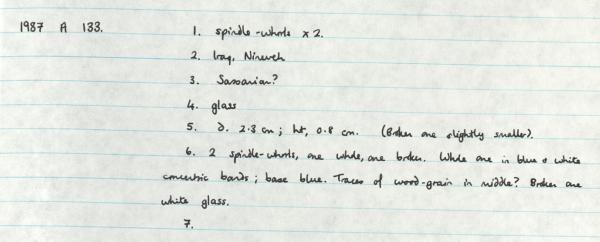 1987 A 133. 1. spindle-whorls x 2.
2. Iraq, Nineveh
3. Sassanian?
4. glass
5. D. 2.3 cm; ht, 0.8 cm. (Broken one slightly smaller).
6. 2 spindle-whorls, one whole, one broken. Whole one in blue & white
concentric bands; base blue. Traces of wood-grain in middle? Broken one
white glass.
7.